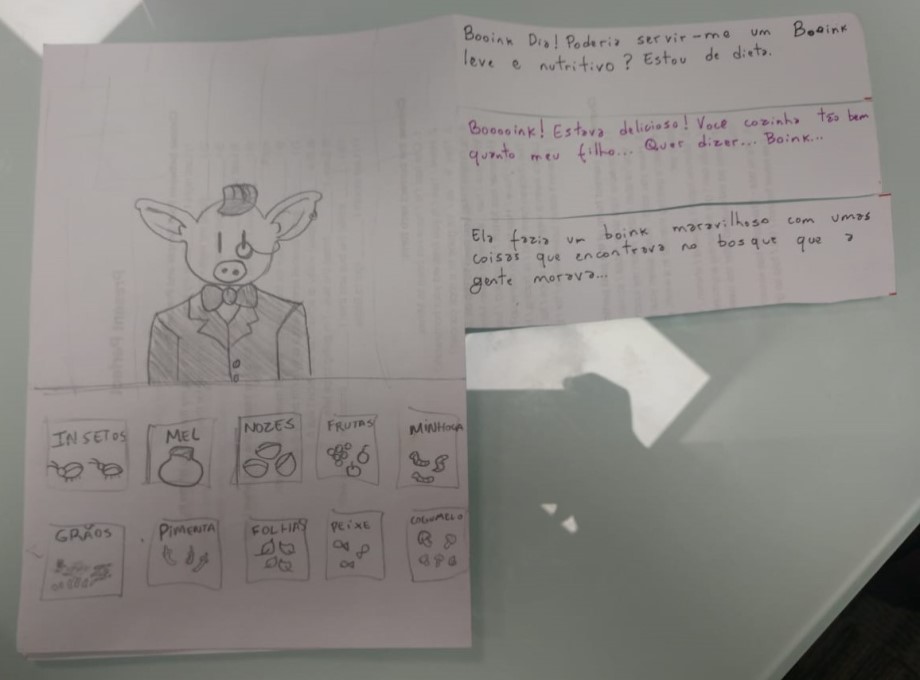 Booink Dia! Poderia servir-me um Booink
leve e nutritivo? Estou de dieta.
Booooink! Estava delicioso! Você cozinha tão bem
quanto meu filho... Quer dizer... Boink...
Ela fazia um boink maravilhoso com umas
coisas que encontrava no bosque que a
gente morava...
INSETOS
MEL
NOZES
FRUTAS
MINHOCA
GRÃOS
PIMENTA
FOLHAS
PEIXE
COGUMELO